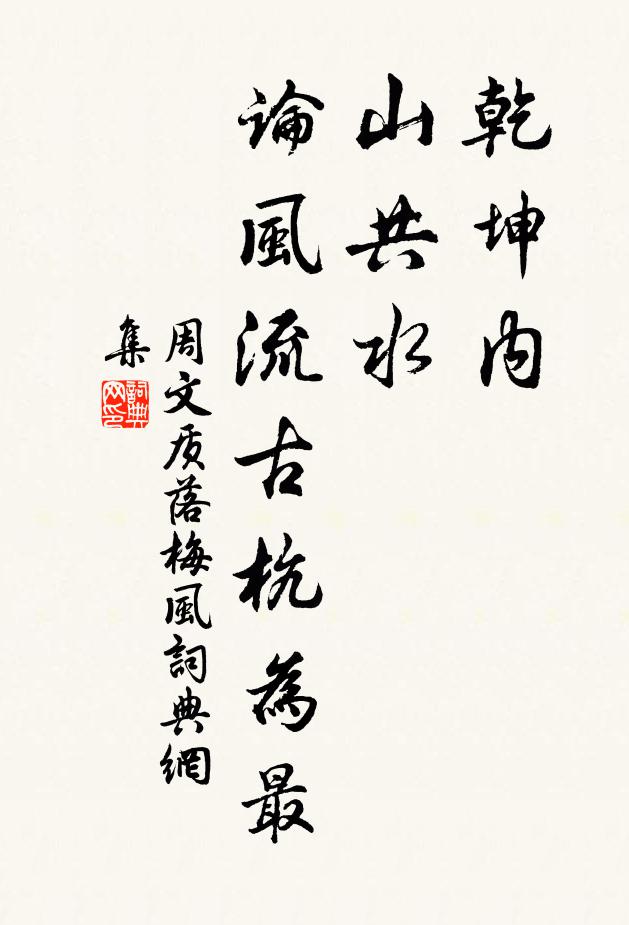 乾坤内
山共水
論風流古杭為最
周文质落梅風詞典網
集
詞典
网印